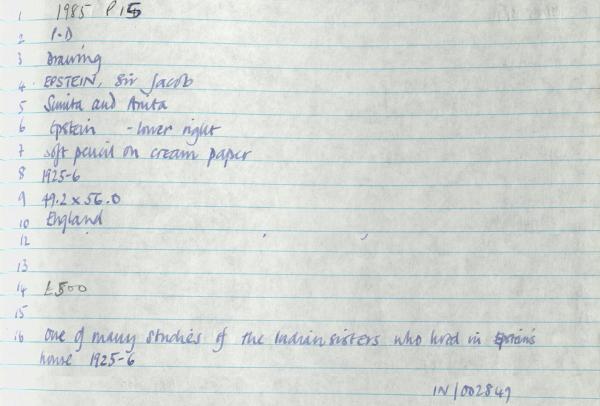 1 1985 P15
2 P.D
3 Drawing
4 EPSTEIN, Sir Jacob
5 Sunita and Anita
6 Epstein - lower right
7 soft pencil on cream paper
8 1925-6
9 49.2 x 56.0
10 England
12
13
14 £500
15
16 One of many studies of the Indian sisters who lived in Epstein's
house 1925-6
IN/002849